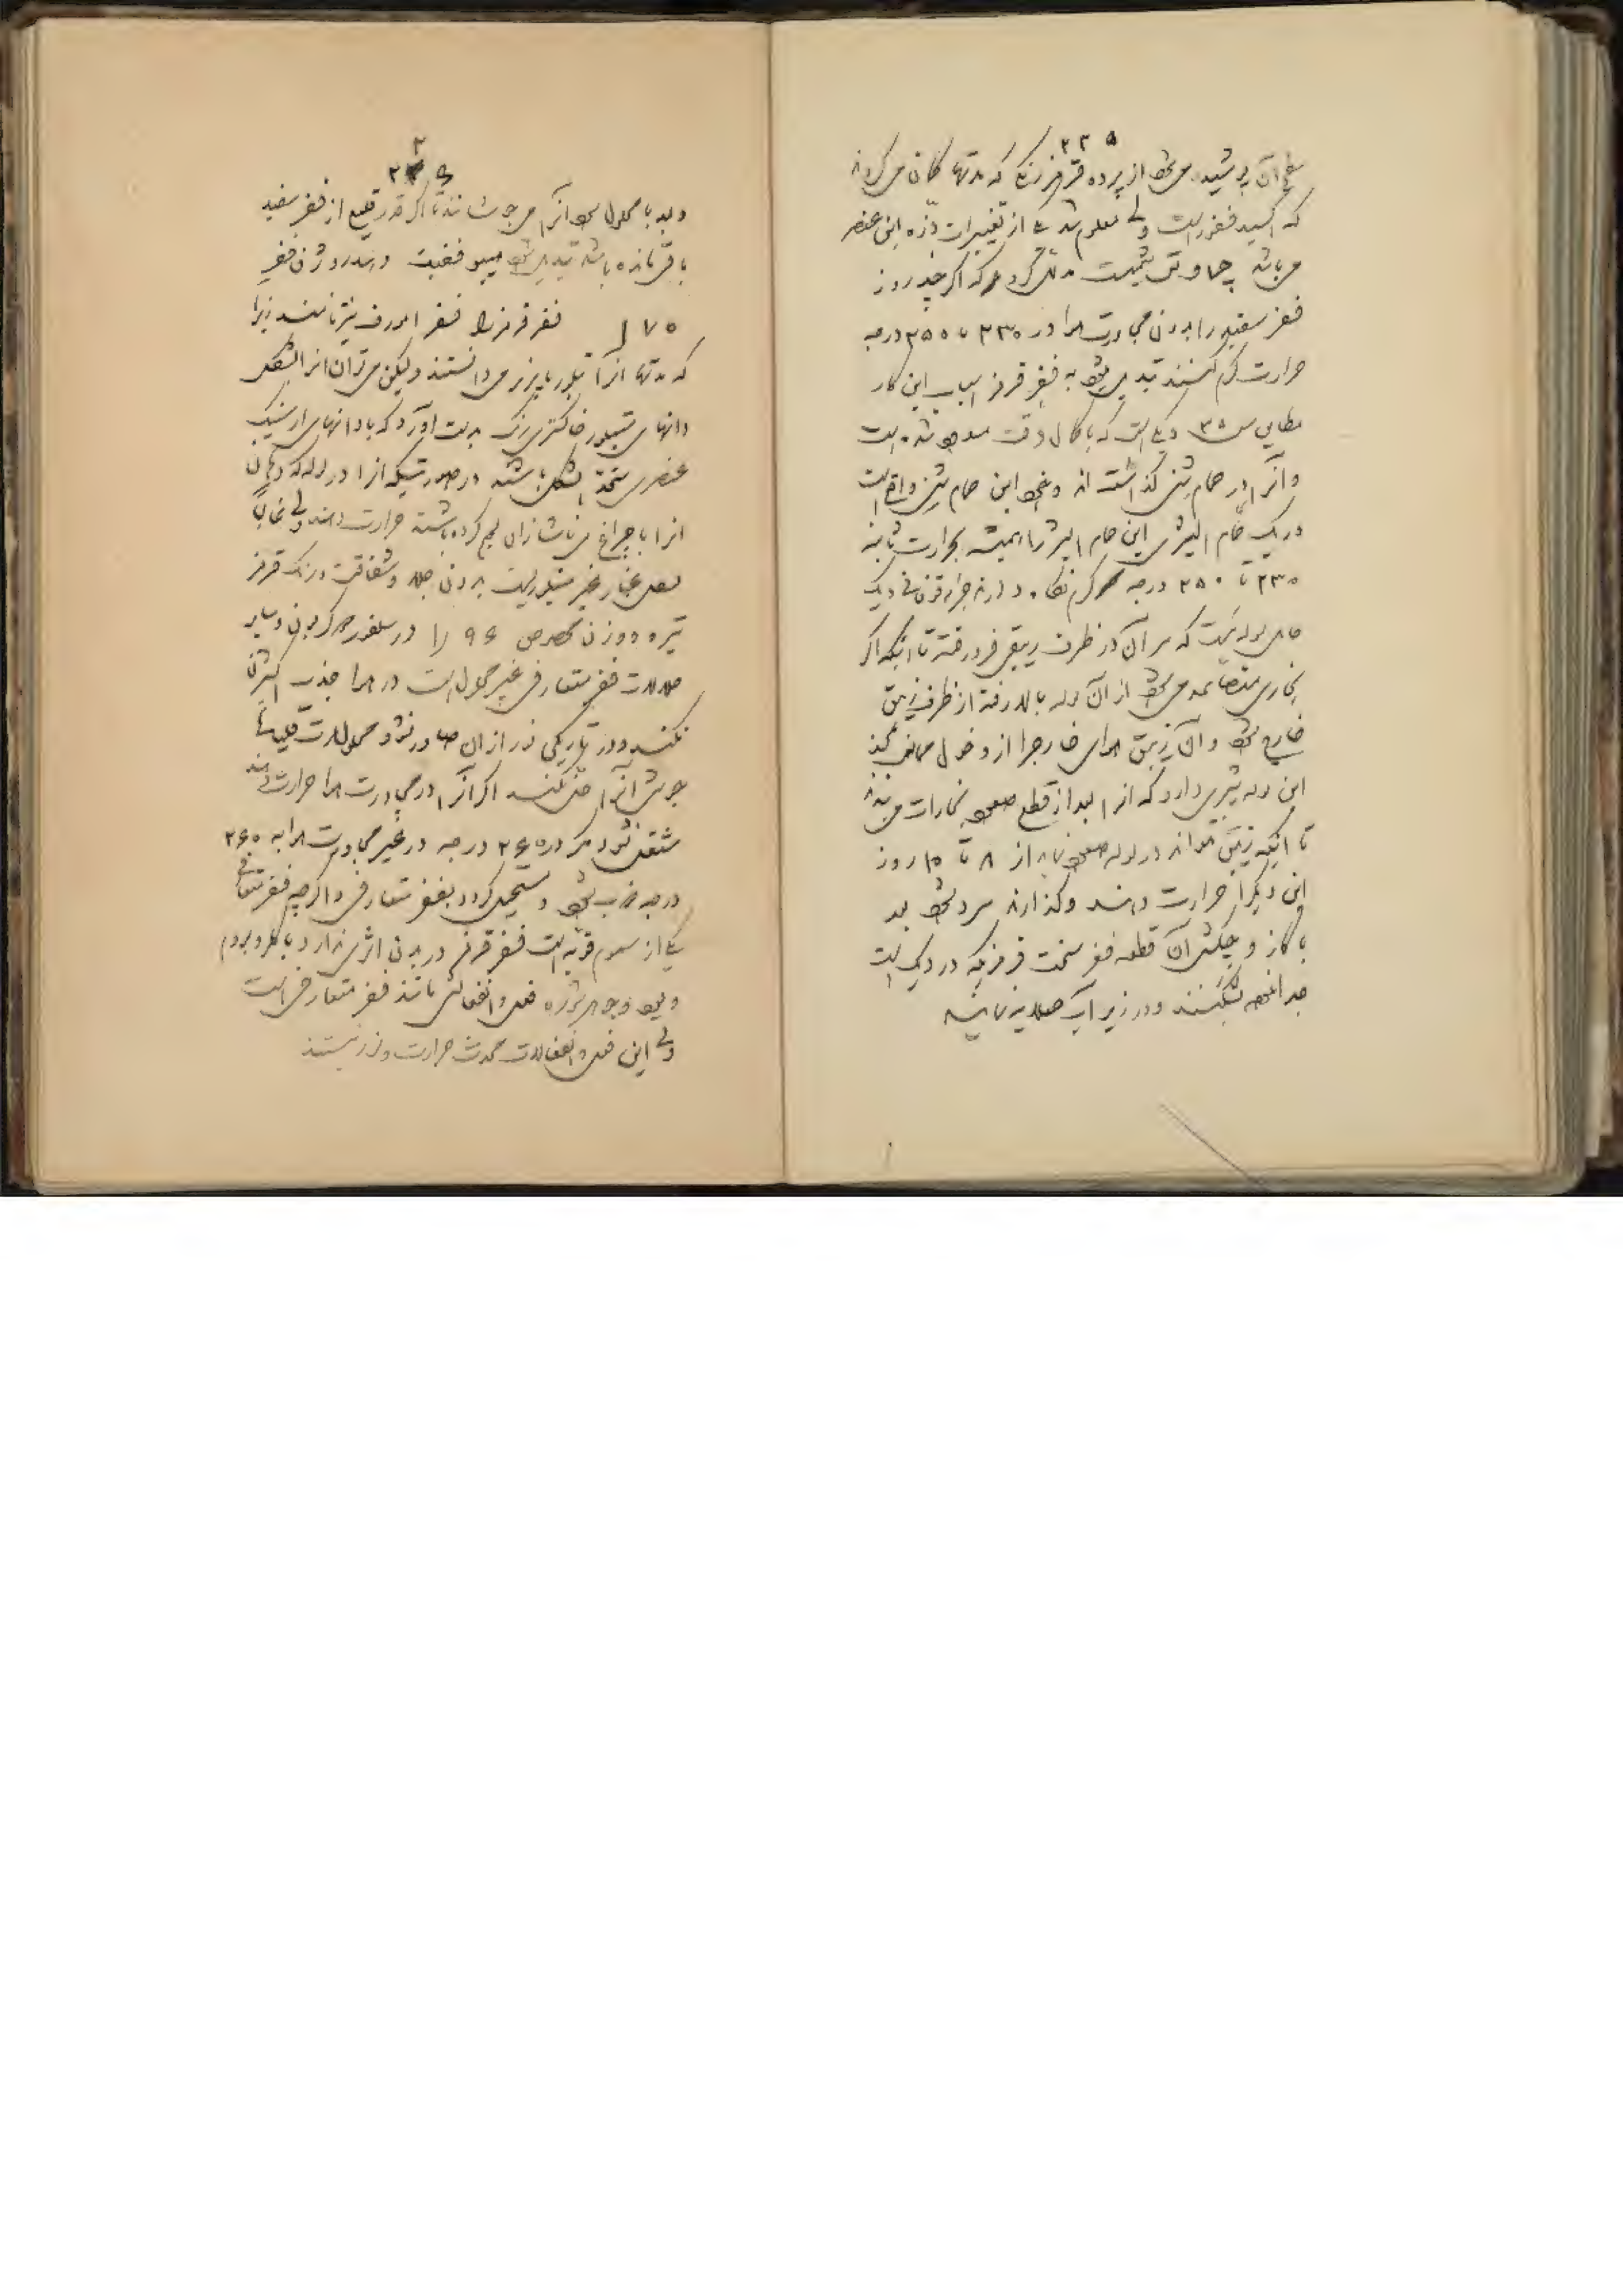 ۲۳۵
سطح آن پوشیده می‌شود از پرده قرمز رنگی که مدتها گمان می‌کردند
که اکسید فسفر است ولی معلوم شد یکی از تغییرات ذره این عنصر
می‌باشد چه او تنی شیمیست مدلل کرد که اگر چند روز
فسفر سفید را بدون مجاورت هوا در ۲۳۰ تا ۲۵۰ درجه
حرارت گرم کنند تبدیل می‌شود به فسفر قرمز اسباب این کار
مطابق ۳۵ دیگی است که با کمال دقت مسدود شده است
و آنرا در حمام شنی گذاشته‌اند و خود این حمام شنی واقع است
در یک حمام الیاژی این حمام الیاژ را همیشه بحرارت ثابته
۲۳۰ تا ۲۵۰ درجه گرم نگاه دارند جزء فوقانی دیگ
حامل لوله‌ایست که سر آن در ظرف زیبقی فرو رفته تا اینکه اگر
بخاری متصاعد می‌شود از آن لوله بالا رفته از ظرف زیبق
خارج شود و آن زیبق هوای خارج را از دخول ممانعت کند
این لوله شیری دارد که آنرا بعد از قطع صعود بخارات می‌بندند
تا اینکه زیبق نتواند در لوله صعود نماید از ۸ تا ۱۰ روز
این دیگ را حرارت دهند و گذارند سرد شود بعد
با گاز و چکش آن قطعه فسفر سخت قرمزیکه در دیگ است
جدا نموده بشکنند و در زیر آب صلایه نمایند
۲۳۶
و بعد با محلول سود آنرا می‌جوشانند تا اگر قدر قلیلی از فسفر سفید
باقیمانده باشد تبدیل شود بهیپوفسفیت و هیدروژن فسفره
۱۷۵ فسفر قرمز را فسفر امورف نیز نامند زیرا
که مدتها آنرا تبلور ناپذیر می‌دانستند ولیکن می‌توان آنرا بشکل
دانهای متبلور خاکستری رنگ بدست آورد که با دانهای ارسنیک
عنصری متحد الشکل باشند در صورتیکه آنرا در لوله که
آنرا با چراغ لحیم کرده باشند حرارت دهند ولی غالباً
بشکل غبار غیر متبلوریست بدون جلا و شفافیت و رنگ قرمز
تیره و وزن مخصوص ۱٫۹۶ در سلفور کربون و سایر
حلالات فسفر متعارفی غیر محلول است در هوا جذب اکسیژن
نکند و در تاریکی نور از آن صادر نشود محلولات قلیایی
جوشان آنرا حل نکند اگر آنرا در مجاورت هوا حرارت دهند
مشتعل نشود مگر در ۲۶۰ درجه در غیر مجاورت هوا به ۲۶۰
درجه ذوب شود و مستحیل گردد بفسفر متعارفی و اگرچه فسفر متعارفی
یکی از سموم قویه است فسفر قرمز در بدن اثری ندارد با کلر و بروم
و ید و جوهر شوره فعل و انفعالش مانند فسفر متعارفی است
ولی این فعل و انفعالات محدث حرارت و نور نیستند